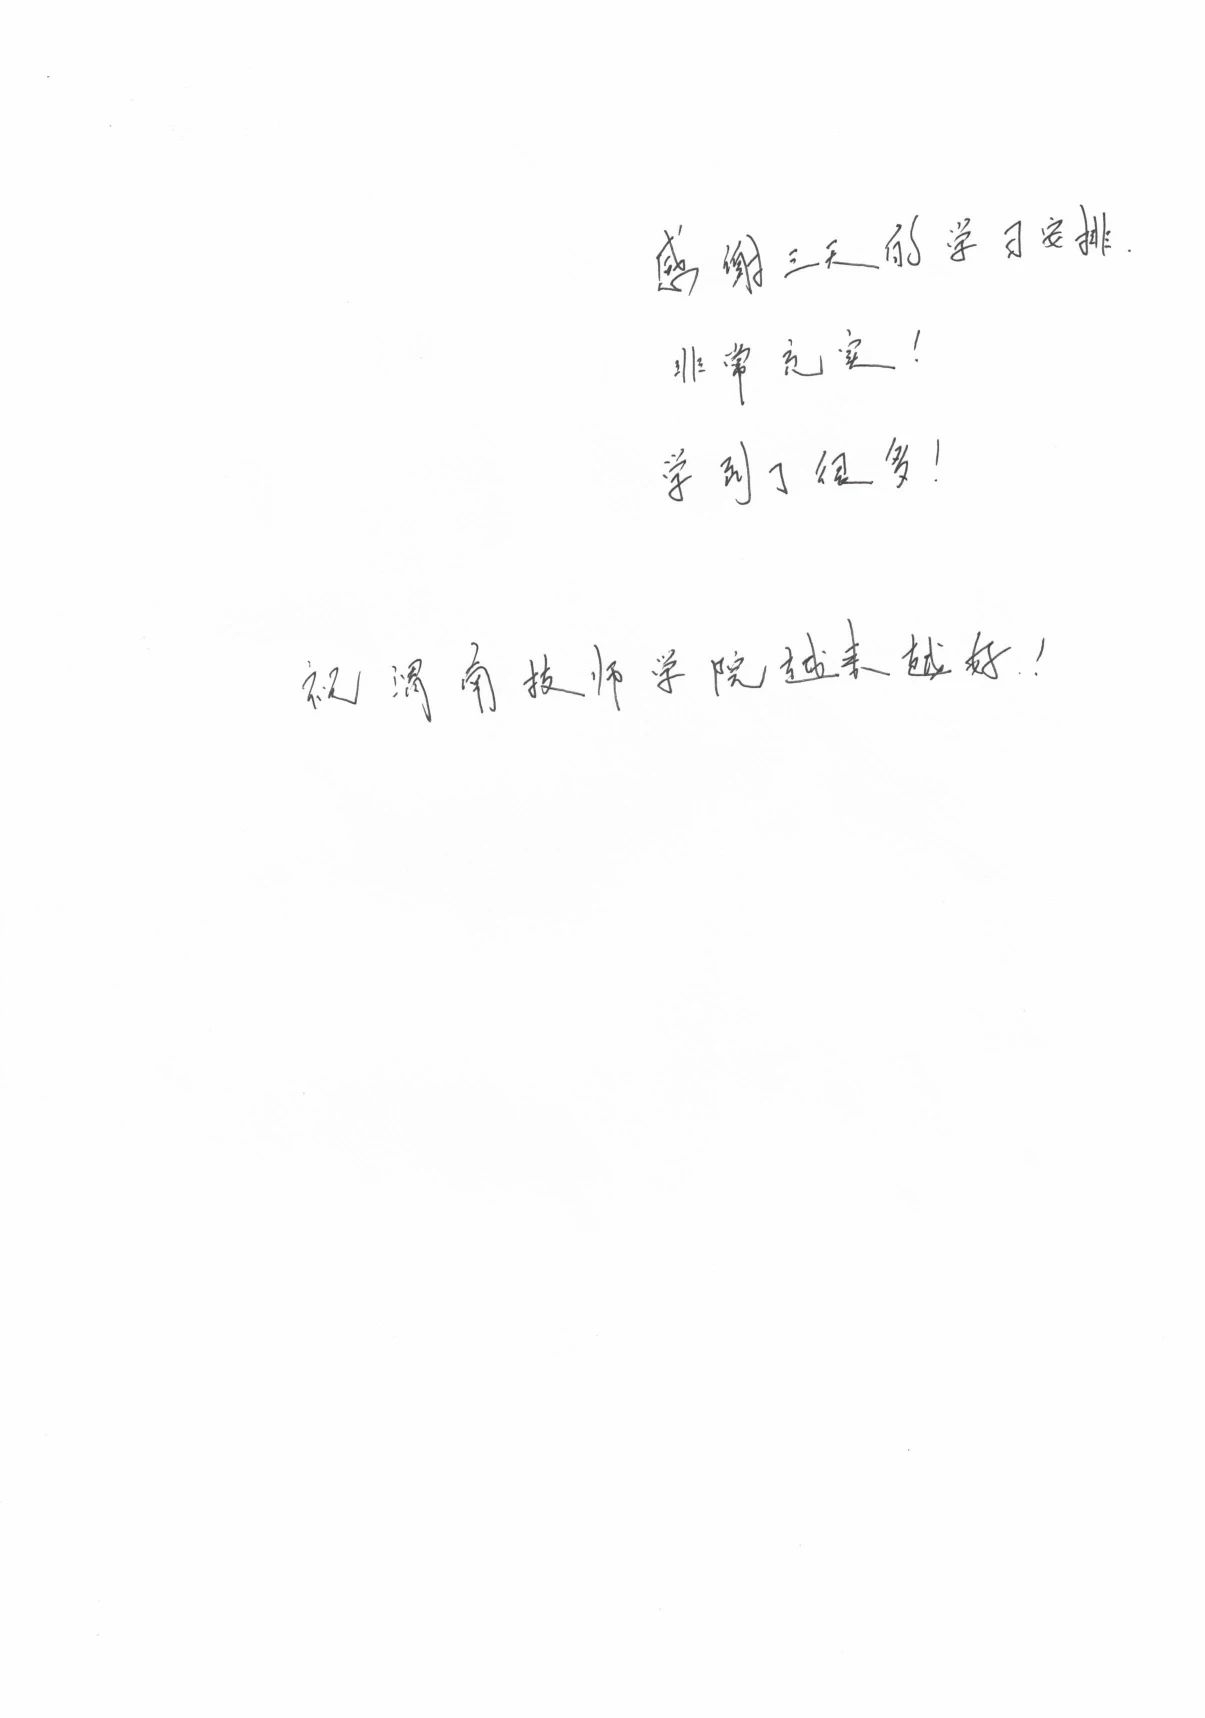 感谢三天的学习安排.
非常充实！
学到了很多！
祝渭南技师学院越来越好！